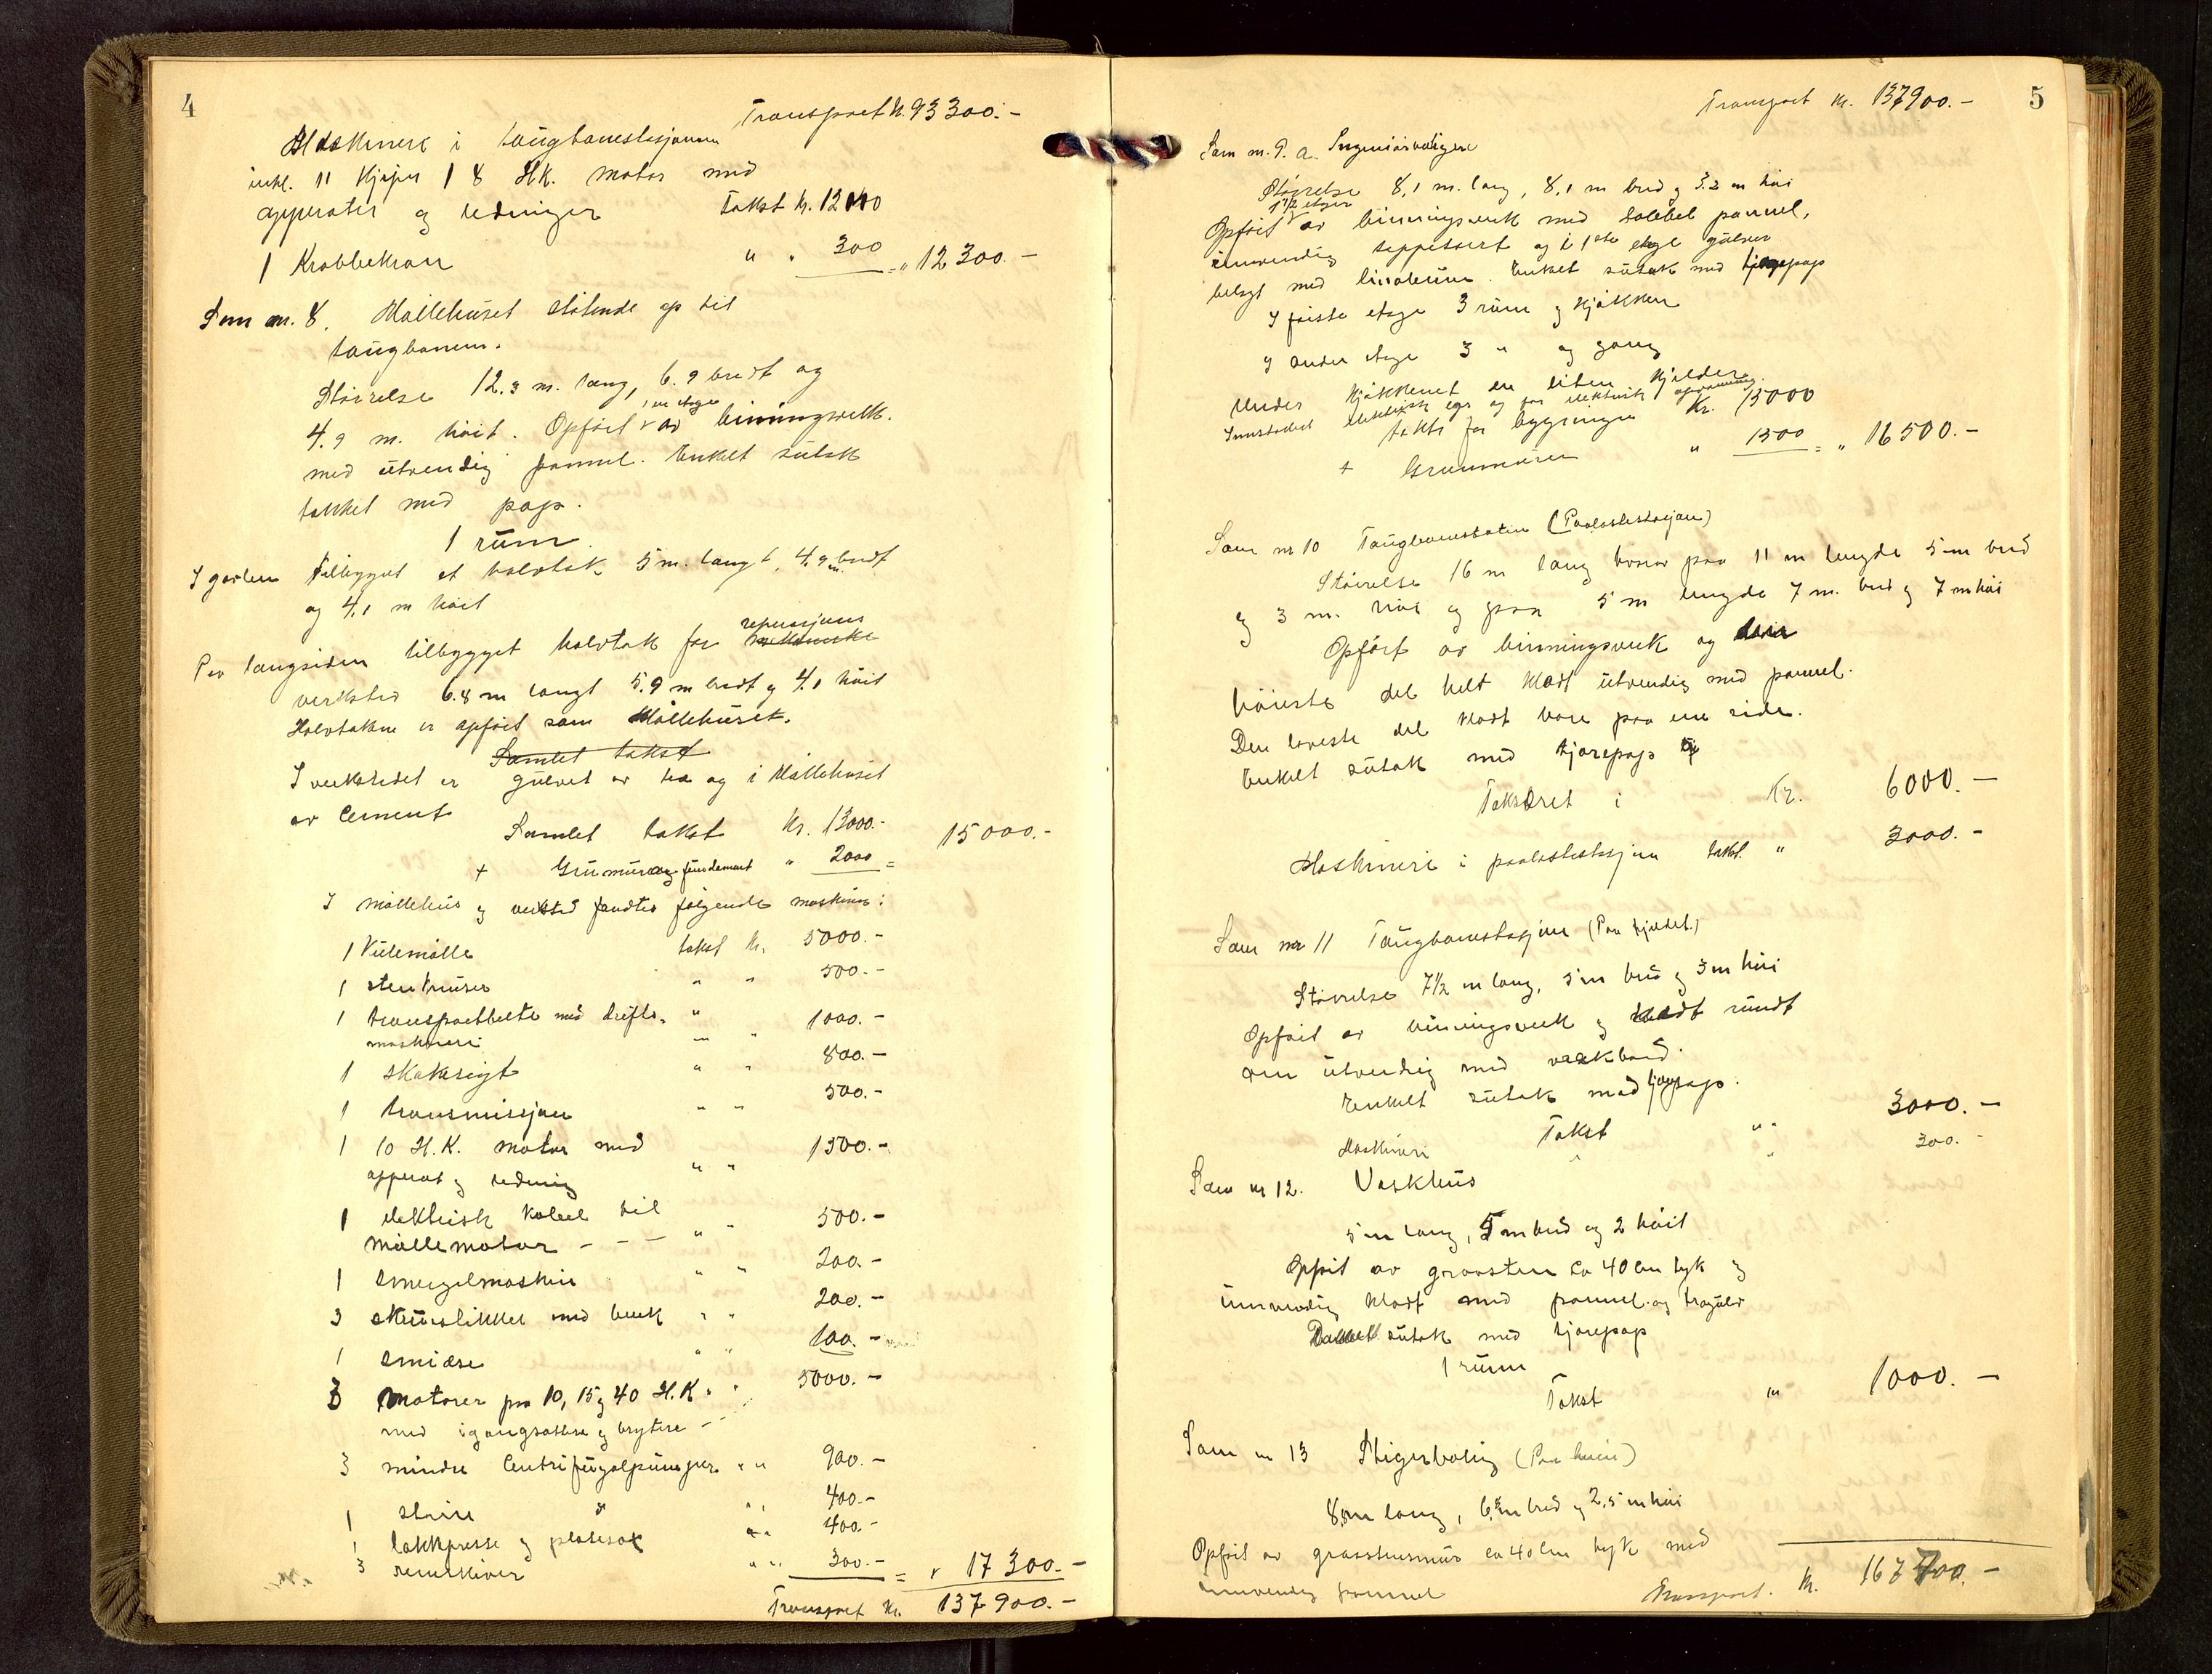 4
Transport kr. 93300.-
Maskineri i taugbanestasjonen
inkl. 11 kjeper 1 8 H.K. motor med
apperater og ledninger Takst kr. 12000
1 Krabbekran " " 300 = " 12300.-
Som nr. 8. Møllehuset støtende op til
taugbanen.
Størrelse 12.3 m. lang, 6.9 bredt og
i en etage
4.9 m. høit. Opført av binningsverk.
med utvendig pannel. Enkelt sutak
tækket med papp.
1 rum
I gavlen tilbygget et halvtak 5 m. langt, 4.9 m bredt
og 4.1 m høit
reperasjons
Paa langsiden tilbygget halvtak for mekaniske
verksted 6.8 m langt 5.9 m bredt og 4.1 høit
Halvtakene er opført som Møllehuset.
Samlet takst
I verkstedet er gulvet av træ og i Møllehuset
av Cement
Samlet takst Kr. 13000.-
+ Grunmur og fundament " 2000 = 15000.-
I møllehus og verksted fandtes følgende maskiner:
1 Kulemølle takst kr. 5000.-
1 stenknuser " " 500.-
1 transportbelte med drifts- "
maskineri — " 1000.-
1 skakesigt " " 800.-
1 transmissjon " " 500.-
1 10 H.K. motor med
apperat og ledning " " 1500.-
1 elektrisk kabel til
møllemotor - - - " " 500.-
1 smergelmaskin " " 200.-
3 skruestikker med benk " " 200.-
1 smiesse " " 100.-
3 motorer paa 10, 15 og 40 H.K. " " 5000.-
med igangsættere og brytere -
3 mindre Centrifugalpumper " " 900.-
1 større " " " 400.-
1 lokkpresse og platesax " " 400.-
3 remskiver " " 300.- = " 17300.-
Transport kr. 137900.-
5
Transport kr. 137900.-
Som nr. 9. a. Ingeniørboligen
Størrelse 8,1 m. lang, 8,1 m bred og 3.2 m høi
1 1/2 etager
Opført av binningsverk med dobbel pannel,
innvendig tappetsert og i 1ste etage gulver
belagt med linoleum. Enkelt sutak med tjærepapp
I første etage 3 rum og kjøkken
I anden etage 3 " og gang
Under kjøkkenet en liten kjelder.
Innstallert elektrisk lys og for elektrisk opvarmning.
takst for bygningen Kr. 15000
+ Grunnmuren " 1500 = " 16500.-
Som nr 10 Taugbanestolen (Paalastestasjon)
Størrelse 16 m lang hvorav paa 11 m lengde 5 m bred
og 3 m. høi og paa 5 m lengde 7 m. bred og 7 m høi
Opført av binningsverk og den
høieste del helt klædt utvendig med pannel.
Den laveste del klædt bare paa ene side.
Enkelt sutak med tjærepapp
Taksert i Kr. 6000.-
Maskineri i paalastestasjon takst " 3000.-
Som nr 11 Taugbanestasjon (Paa fjeldet.)
Størrelse 7 1/2 m lang, 5 m bred og 3 m høi
Opført av binningsverk og klædt rundt
om utvendig med vrakbord.
Enkelt sutak med tjærepapp.
Takst " " 3000.-
Maskineri " " 300.-
Som nr 12. Vaskhus
5 m lang, 5 m bred og 2 høit
Opført av graasten ca 40 cm tyk og
innvendig klædt med pannel og trægulv
Dobbelt sutak med tjærepapp
1 rum
Takst " 1000.-
Som nr 13 Stigerbolig (Paa heien)
8,0 m lang, 6,5 m bred og 2,5 m høi
Opført av graastensmur ca 40 cm tyk med
innvendig pannel
Transport. Kr. 167700.-